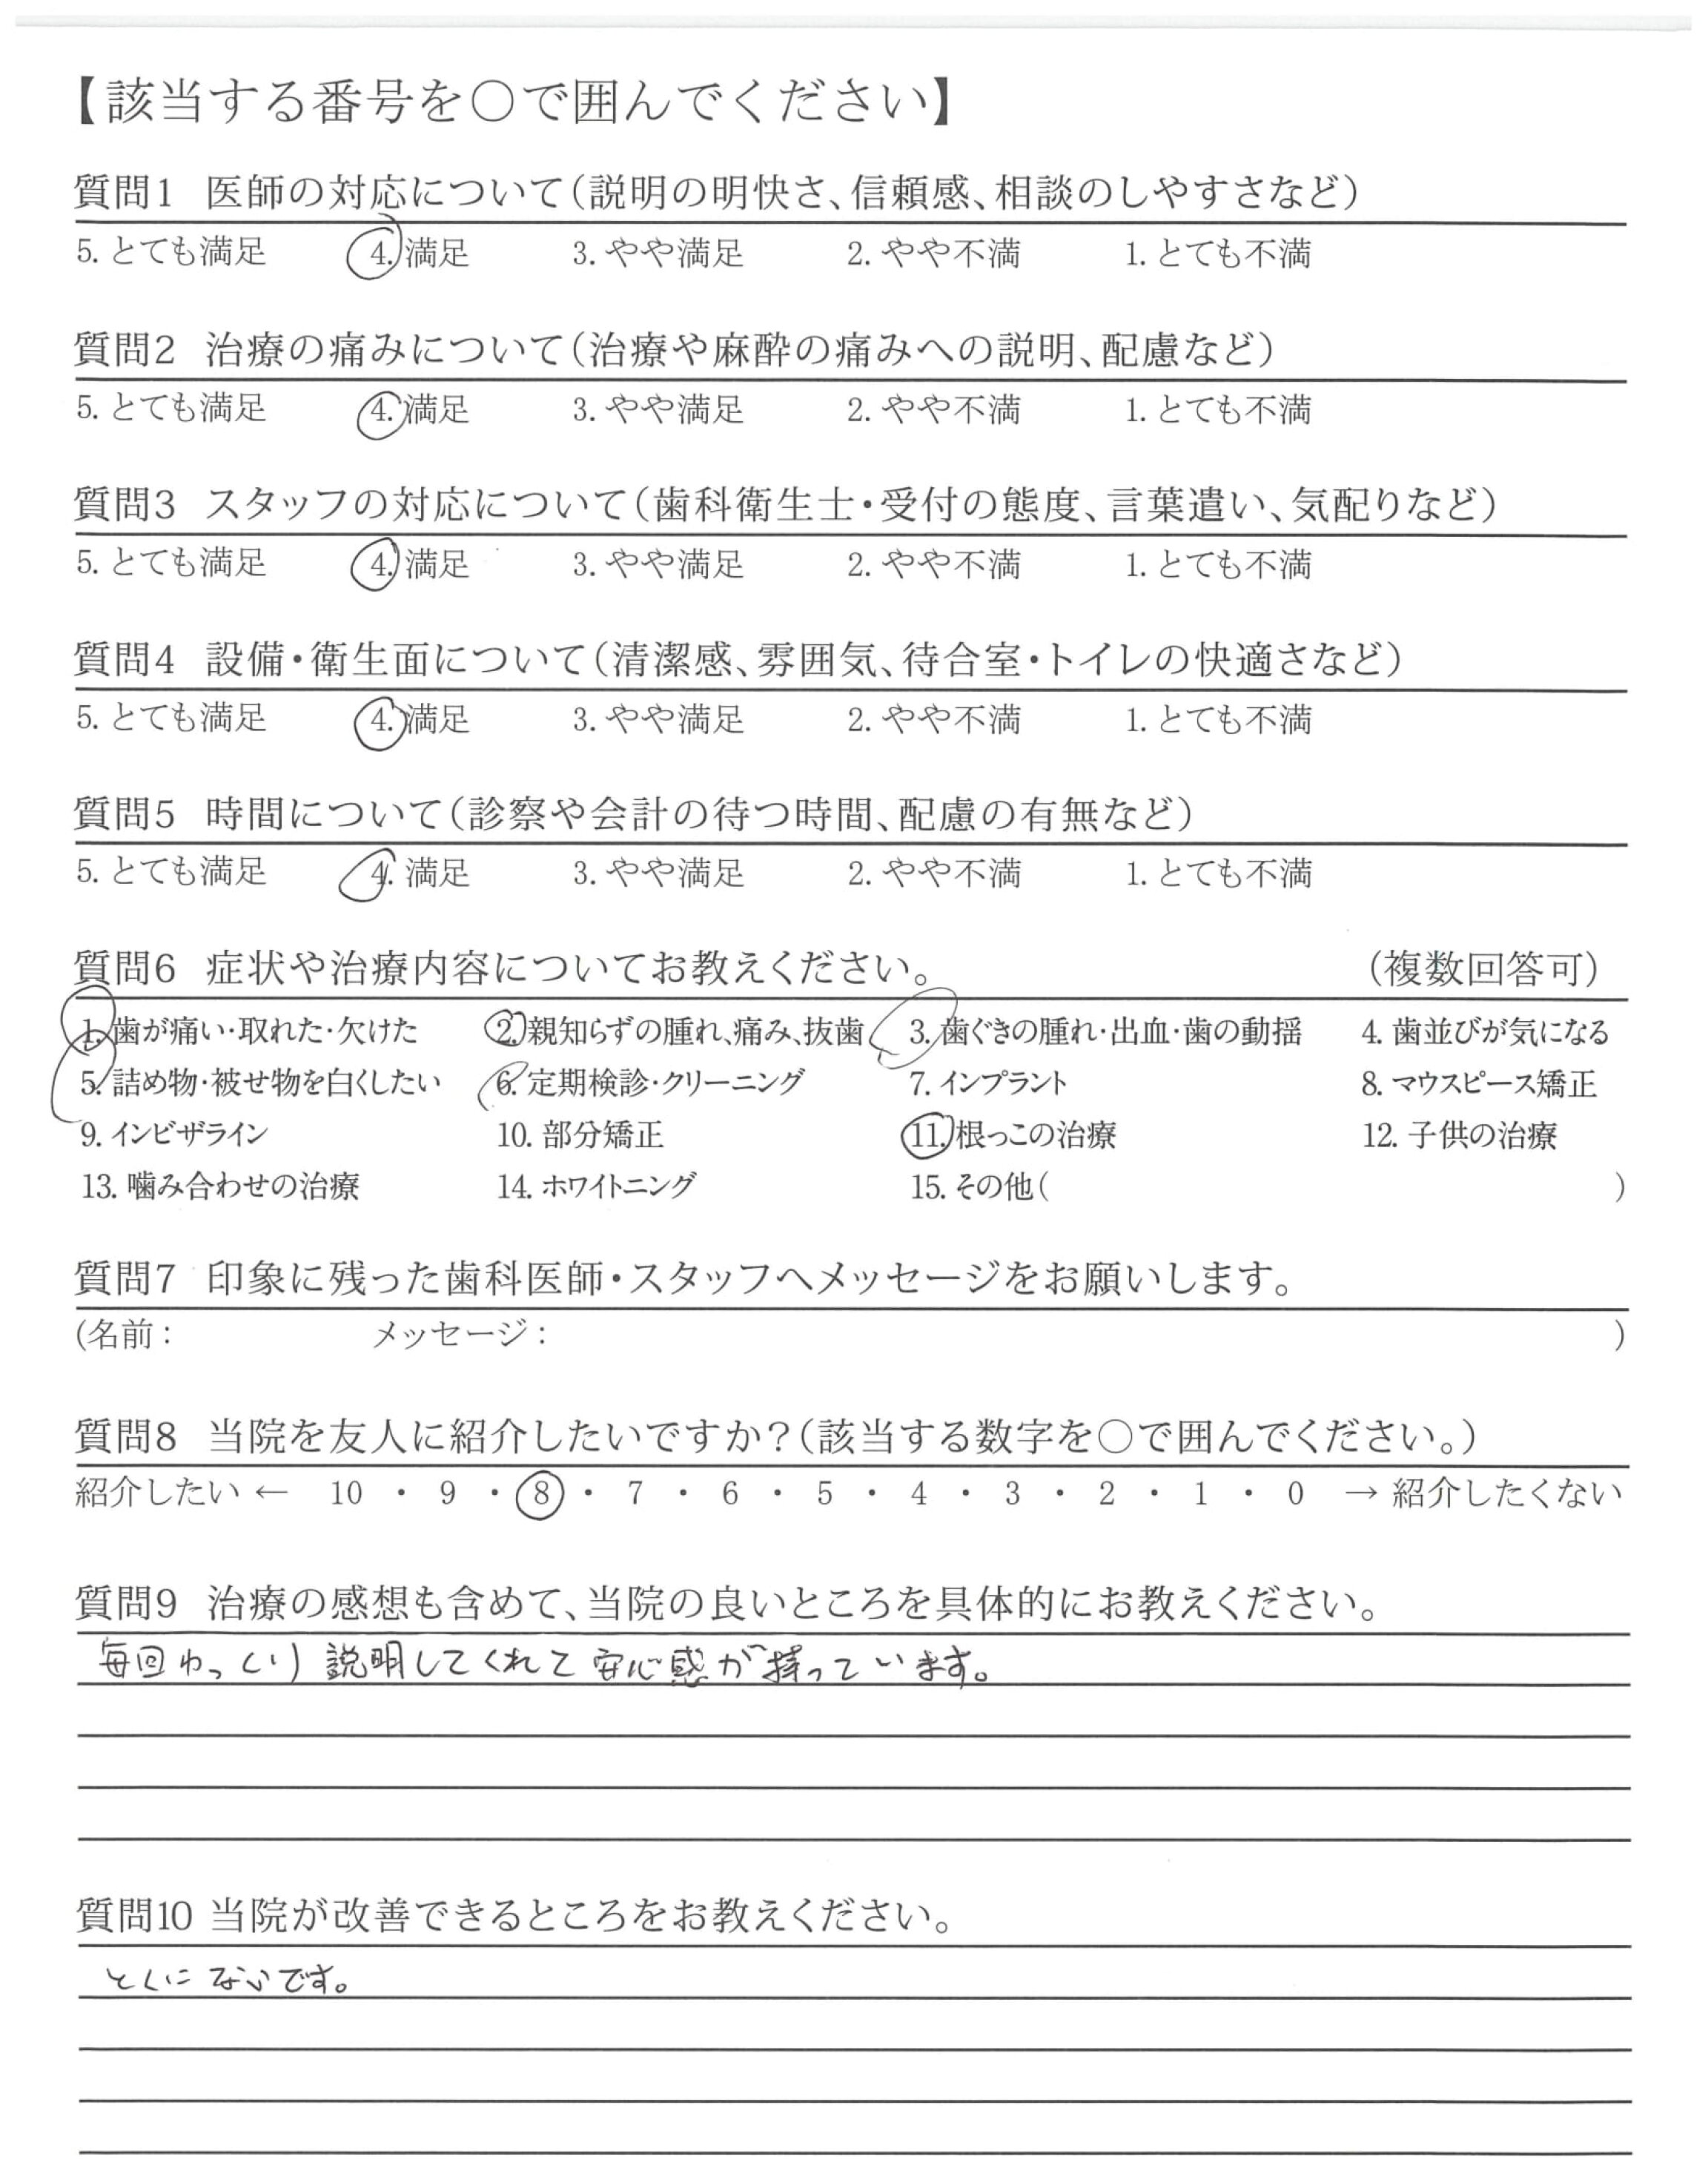 【該当する番号を○で囲んでください】
質問1 医師の対応について(説明の明快さ、信頼感、相談のしやすさなど)
5. とても満足 4. 満足 3. やや満足 2. やや不満 1. とても不満
質問2 治療の痛みについて(治療や麻酔の痛みへの説明、配慮など)
5. とても満足 4. 満足 3. やや満足 2. やや不満 1. とても不満
質問3 スタッフの対応について(歯科衛生士・受付の態度、言葉遣い、気配りなど)
5. とても満足 4. 満足 3. やや満足 2. やや不満 1. とても不満
質問4 設備・衛生面について(清潔感、雰囲気、待合室・トイレの快適さなど)
5. とても満足 4. 満足 3. やや満足 2. やや不満 1. とても不満
質問5 時間について(診察や会計の待つ時間、配慮の有無など)
5. とても満足 4. 満足 3. やや満足 2. やや不満 1. とても不満
質問6 症状や治療内容についてお教えください。 (複数回答可)
1. 歯が痛い・取れた・欠けた 2. 親知らずの腫れ、痛み、抜歯 3. 歯ぐきの腫れ・出血・歯の動揺 4. 歯並びが気になる
5. 詰め物・被せ物を白くしたい 6. 定期検診・クリーニング 7. インプラント 8. マウスピース矯正
9. インビザライン 10. 部分矯正 11. 根っこの治療 12. 子供の治療
13. 噛み合わせの治療 14. ホワイトニング 15. その他( )
質問7 印象に残った歯科医師・スタッフへメッセージをお願いします。
(名前: メッセージ: )
質問8 当院を友人に紹介したいですか?(該当する数字を○で囲んでください。)
紹介したい ← 10 ・ 9 ・ 8 ・ 7 ・ 6 ・ 5 ・ 4 ・ 3 ・ 2 ・ 1 ・ 0 → 紹介したくない
質問9 治療の感想も含めて、当院の良いところを具体的にお教えください。
毎回ゆっくり説明してくれて安心感が持っています。
質問10 当院が改善できるところをお教えください。
とくにないです。